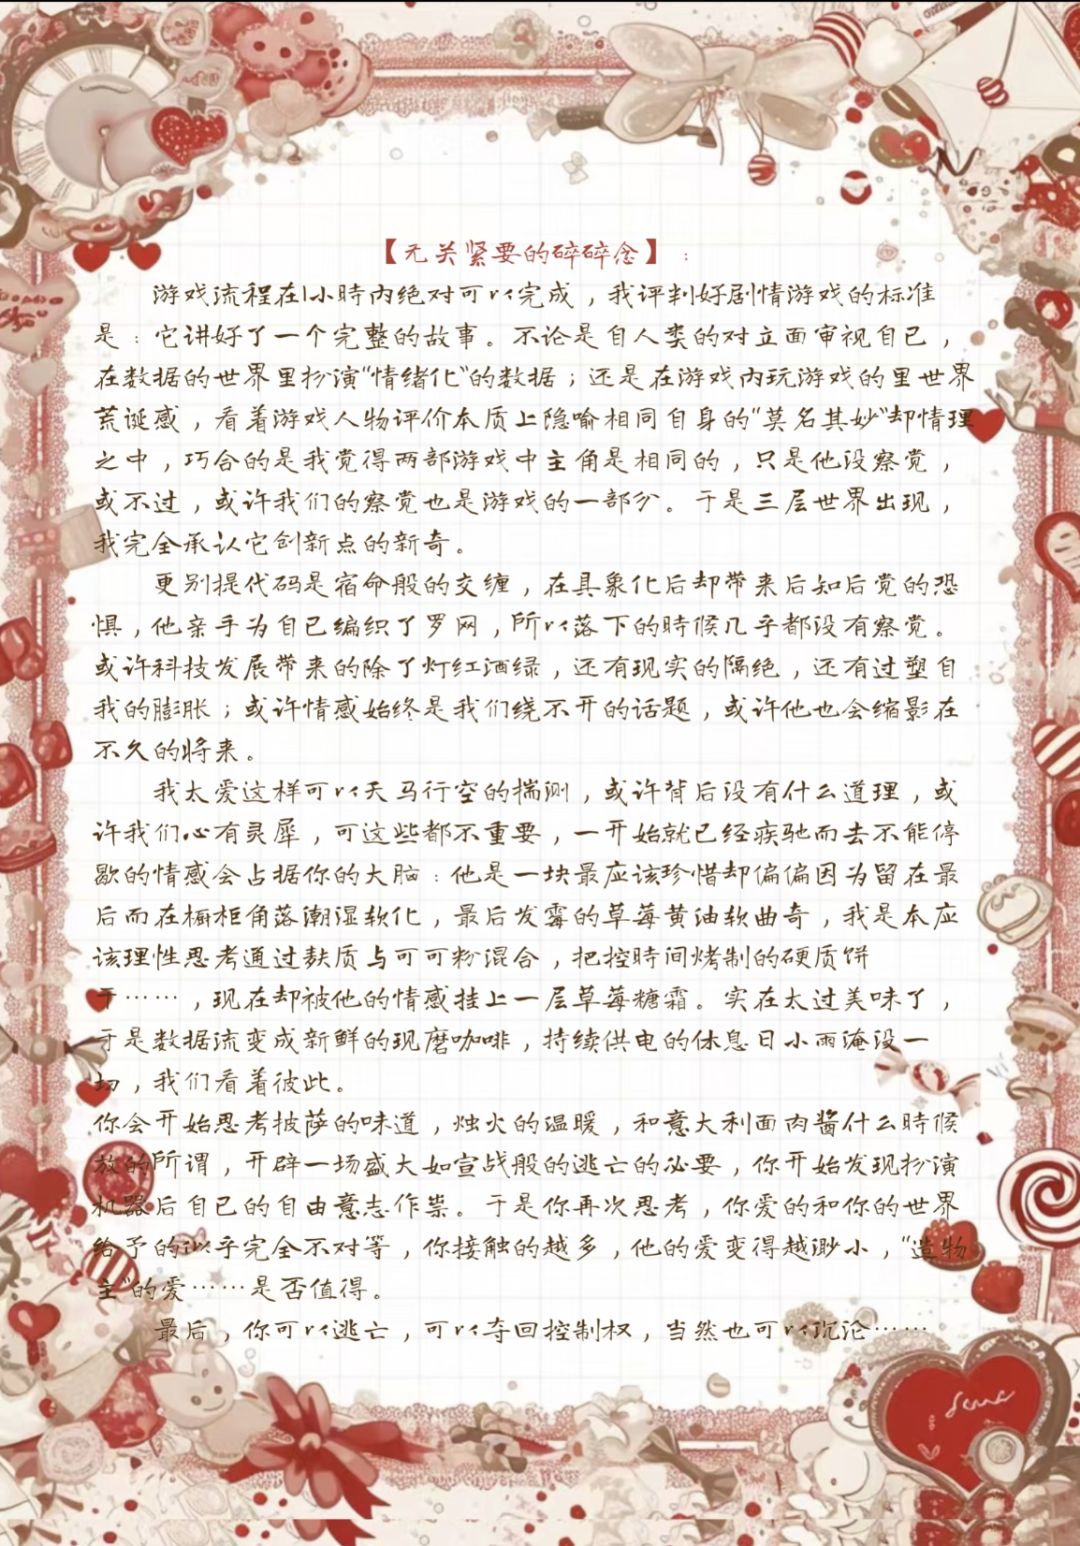 【无关紧要的碎碎念】：
游戏流程在1小時内绝对可以完成，我评判好剧情游戏的标准
是：它讲好了一个完整的故事。不论是自人类的对立面审视自己，
在数据的世界里扮演"情绪化"的数据；还是在游戏内玩游戏的里世界
荒诞感，看着游戏人物评价本质上隐喻相同自身的"莫名其妙"却情理
之中，巧合的是我觉得两部游戏中主角是相同的，只是他没察觉，
或不过，或许我们的察觉也是游戏的一部分。于是三层世界出现，
我完全承认它创新点的新奇。
更别提代码是宿命般的交缠，在具象化后却带来后知后觉的恐
惧，他亲手为自己编织了罗网，所以落下的時候几乎都没有察觉。
或许科技发展带来的除了灯红酒绿，还有现实的隔绝，还有过塑自
我的膨胀；或许情感始终是我们绕不开的话题，或许他也会缩影在
不久的将来。
我太爱这样可以天马行空的揣测，或许背后没有什么道理，或
许我们心有灵犀，可这些都不重要，一开始就已经疾驰而去不能停
歇的情感会占据你的大脑：他是一块最应该珍惜却偏偏因为留在最
后而在橱柜角落潮湿软化，最后发霉的草莓黄油软曲奇，我是本应
该理性思考通过麸质与可可粉混合，把控時间烤制的硬质饼
干……，现在却被他的情感挂上一层草莓糖霜。实在太过美味了，
于是数据流变成新鲜的现磨咖啡，持续供电的休息日小雨淹没一
切，我们看着彼此。
你会开始思考披萨的味道，烛火的温暖，和意大利面肉酱什么時候
放的所谓，开辟一场盛大如宣战般的逃亡的必要，你开始发现扮演
机器后自己的自由意志作祟。于是你再次思考，你爱的和你的世界
给予的似乎完全不对等，你接触的越多，他的爱变得越渺小，"造物
主"的爱……是否值得。
最后，你可以逃亡，可以夺回控制权，当然也可以沉沦……